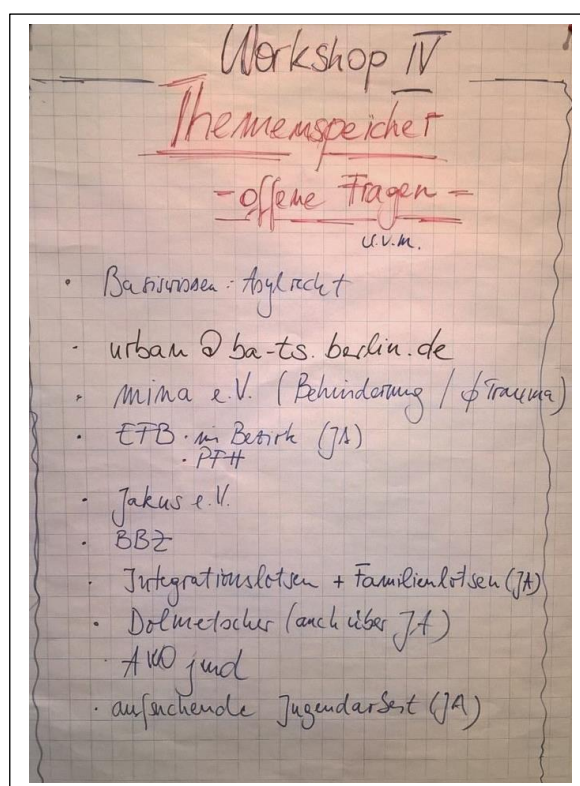 Workshop IV
Themenspeicher
- offene Fragen -
u.v.m.
· Basiswissen: Asylrecht
· urban@ba-ts.berlin.de
· mina e.V. (Behinderung / ∮Trauma)
· ETB · im Bezirk (JA)
· PFH
· Jakus e.V.
· BBZ
· Integrationslotsen + Familienlotsen (JA)
· Dolmetscher (auch über JA)
· AKO jmd
· aufsuchende Jugendarbeit (JA)